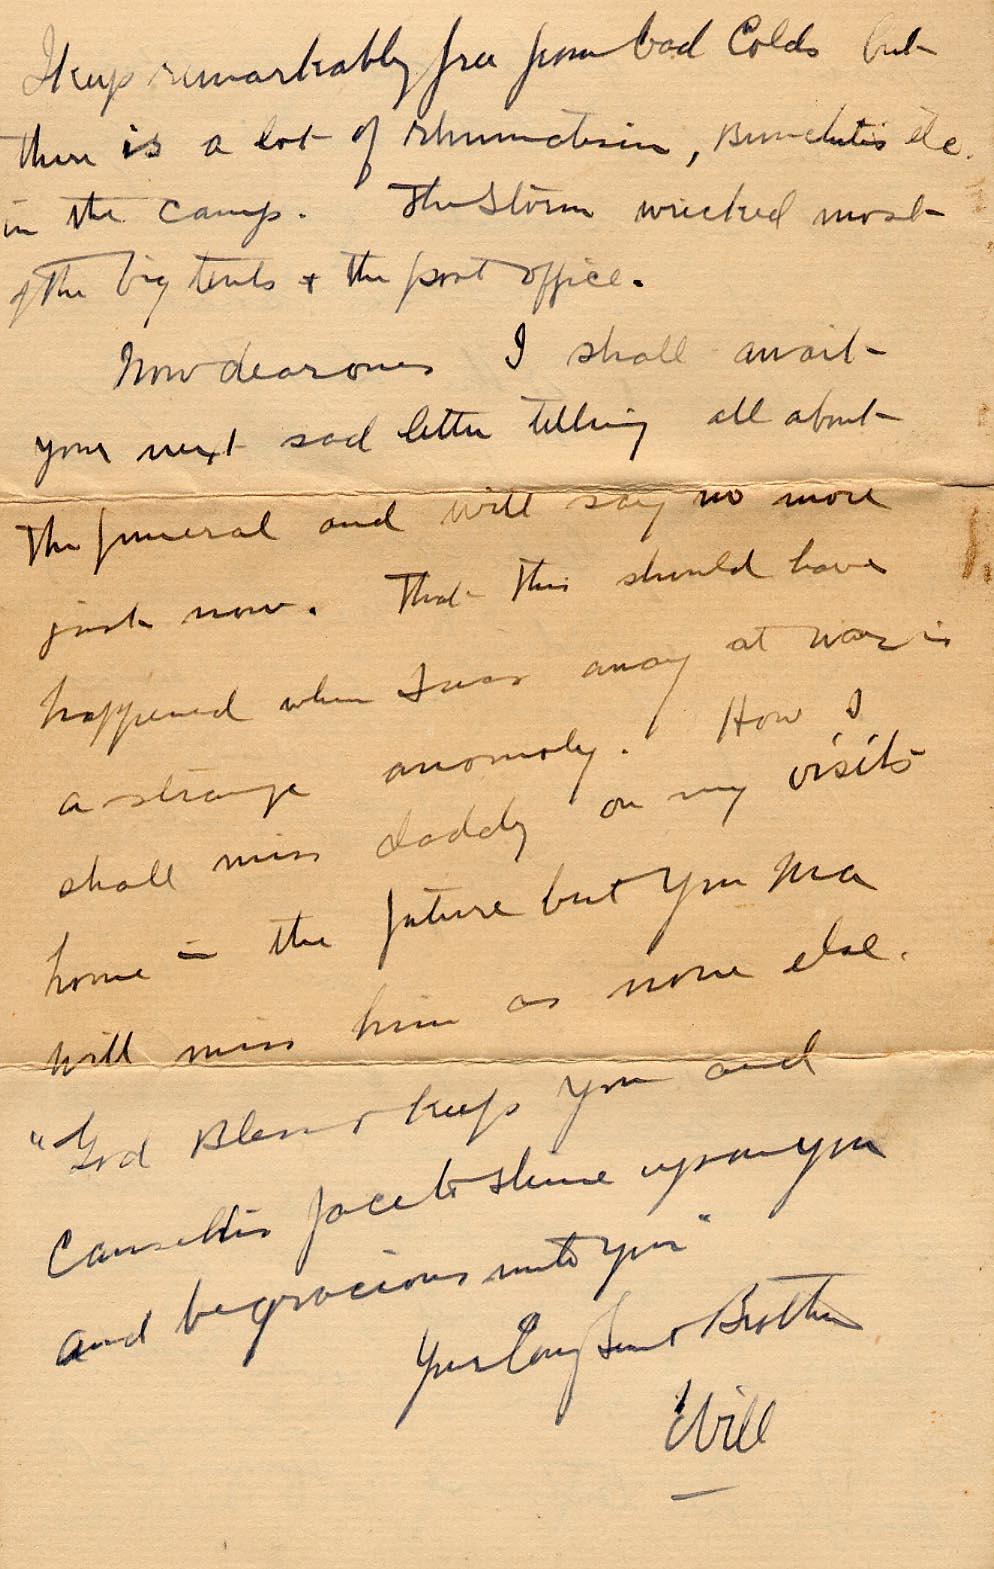 I keep remarkably free from bad Colds but
there is a lot of rhumatism, Bronchitis etc.
in the camp. The Storm wrecked most
of the big tents + the post office.
Now dear ones I shall await
your next sad letter telling all about
the funeral and will say no more
just now. That this should have
happened when I was away at war is
a strange anomoly. How I
shall miss daddy on my visits
home in the future but you Ma
will miss him as none else.
"God Bless + keep you and
Cause His face to shine upon you
and be gracious unto you"
Your Son + Brother
Will